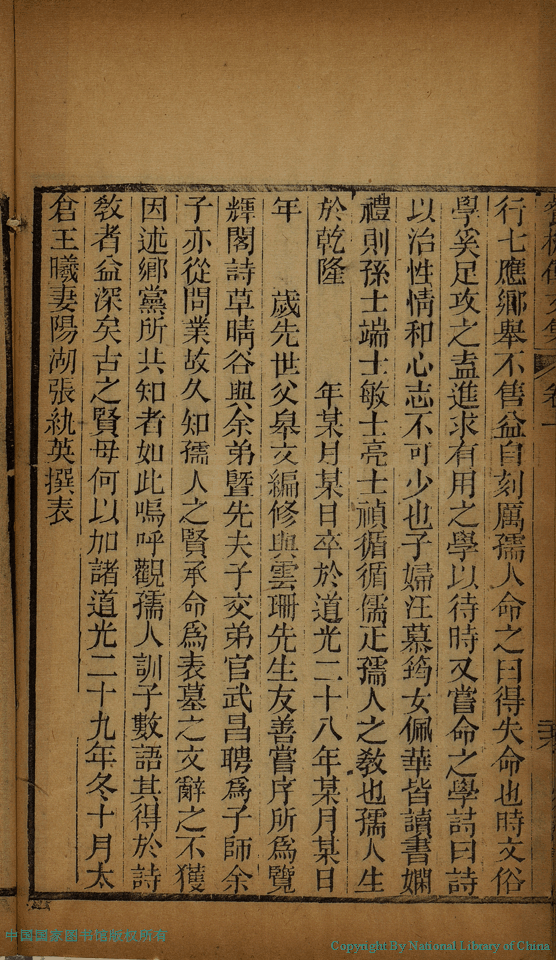 行七應鄉舉不售益自刻厲孺人命之曰得失命也時文俗
學奚足攻之盍進求有用之學以待時又嘗命之學詩曰詩
以治性情和心志不可少也子婦汪慕筠女佩華皆讀書嫻
禮則孫士端士敏士亮士禎循循儒正孺人之教也孺人生
於乾隆 年某月某日卒於道光二十八年某月某日
年 歲先世父皋文編修與雲珊先生友善嘗序所為覽
輝閣詩草晴谷與余弟曁先夫子交弟官武昌聘爲子師余
子亦從問業故久知孺人之賢承命爲表墓之文辭之不獲
因述鄉黨所共知者如此嗚呼觀孺人訓子數語其得於詩
敎者益深矣古之賢母何以加諸道光二十九年冬十月太
倉王曦妻陽湖張紈英撰表
中国国家图书馆版权所有
Copyright By National Library of China